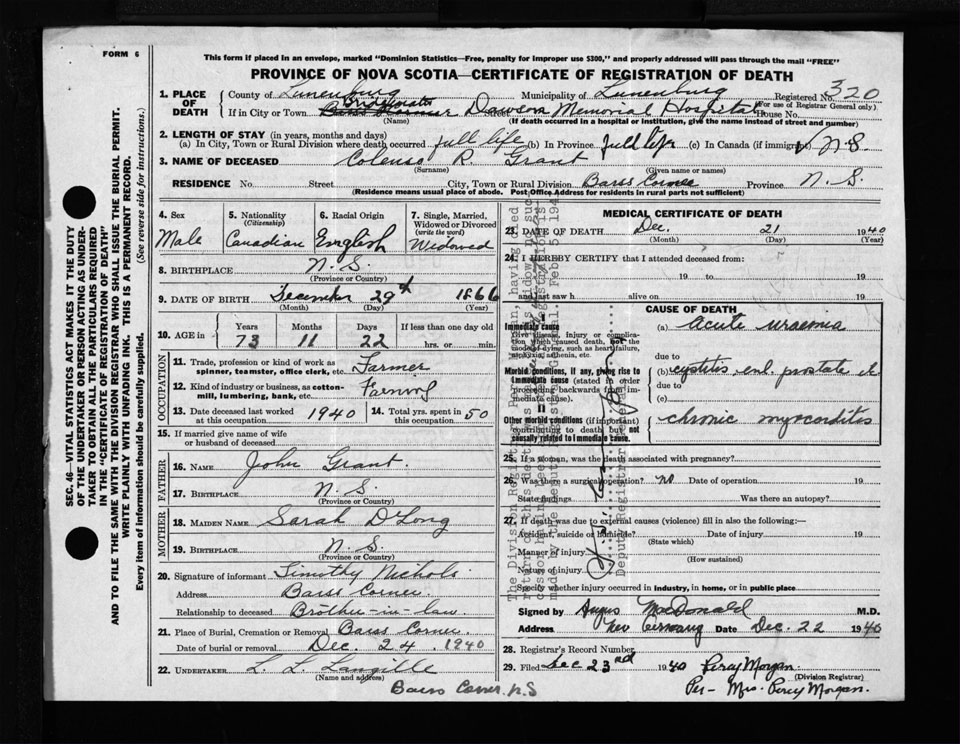 FORM 6
This form if placed in an envelope, marked "Dominion Statistics—Free, penalty for improper use $300," and properly addressed will pass through the mail "FREE"
PROVINCE OF NOVA SCOTIA—CERTIFICATE OF REGISTRATION OF DEATH
1. PLACE OF DEATH County of Lunenburg Municipality of Lunenburg Registered No. 320
(For use of Registrar General only)
If in City or Town Bridgewater Street Dawson Memorial Hospital House No.
(Name) (If death occurred in a hospital or institution, give the name instead of street and number)
2. LENGTH OF STAY (in years, months and days)
(a) In City, Town or Rural Division where death occurred full life (b) In Province full life (c) In Canada (if immigrant) N.S
3. NAME OF DECEASED Colenso R. Grant
(Surname) (Given name or names)
RESIDENCE No. Street City, Town or Rural Division Barss Corner Province N.S.
(Residence means usual place of abode. Post Office Address for residents in rural parts not sufficient)
4. Sex Male
5. Nationality (Citizenship) Canadian
6. Racial Origin English
7. Single, Married, Widowed or Divorced (write the word) Widowed
8. BIRTHPLACE N.S.
(Province or Country)
9. DATE OF BIRTH December 29th 1866
(Month) (Day) (Year)
10. AGE in Years Months Days If less than one day old
73 11 22 hrs. or min.
OCCUPATION
11. Trade, profession or kind of work as spinner, teamster, office clerk, etc. Farmer
12. Kind of industry or business, as cotton-mill, lumbering, bank, etc. Farming
13. Date deceased last worked at this occupation 1940
14. Total yrs. spent in 50
15. If married give name of wife or husband of deceased
FATHER
16. NAME John Grant.
17. BIRTHPLACE N.S.
(Province or Country)
MOTHER
18. MAIDEN NAME Sarah DLong
19. BIRTHPLACE N.S.
(Province or Country)
20. Signature of informant Timothy Nichols
Address Barss Corner.
Relationship to deceased Brother-in-law.
21. Place of Burial, Cremation or Removal Barss Corner.
Date of burial or removal Dec. 24. 1940
22. UNDERTAKER L. L. Langille
(Name and address)
Barss Corner, N.S
MEDICAL CERTIFICATE OF DEATH
23. DATE OF DEATH Dec. 21 1940
(Month) (Day) (Year)
24. I HEREBY CERTIFY that I attended deceased from:
19 to 19
and last saw h alive on 19
CAUSE OF DEATH
Immediate cause
Give disease, injury or complication which caused death, not the mode of dying, such as heart failure, asphyxia, asthenia, etc.
(a) acute uraemia
due to
Morbid conditions, if any, giving rise to immediate cause (stated in order proceeding backwards from immediate cause).
(b) cystitis enl. prostate
due to
(c)
II
Other morbid conditions (if important) contributing to death but not causally related to immediate cause.
chronic myocarditis
25. If a woman, was the death associated with pregnancy?
26. Was there a surgical operation? no Date of operation 19
State findings Was there an autopsy?
27. If death was due to external causes (violence) fill in also the following:—
Accident, suicide or homicide? Date of injury 19
(State which)
Manner of injury
(How sustained)
Nature of injury
Specify whether injury occurred in industry, in home, or in public place
Signed by Angus MacDonald M.D.
Address New Germany Date Dec. 22 1940
28. Registrar's Record Number
29. Filed Dec 23rd 1940 Percy Morgan.
(Division Registrar)
Per— Mrs. Percy Morgan.
Deputy Registrar General
SEC. 46—VITAL STATISTICS ACT MAKES IT THE DUTY
OF THE UNDERTAKER OR PERSON ACTING AS UNDER-
TAKER TO OBTAIN ALL THE PARTICULARS REQUIRED
IN THE "CERTIFICATE OF REGISTRATION OF DEATH"
AND TO FILE THE SAME WITH THE DIVISION REGISTRAR WHO SHALL ISSUE THE BURIAL PERMIT.
WRITE PLAINLY WITH UNFADING INK. THIS IS A PERMANENT RECORD.
Every item of information should be carefully supplied. (See reverse side for instructions.)